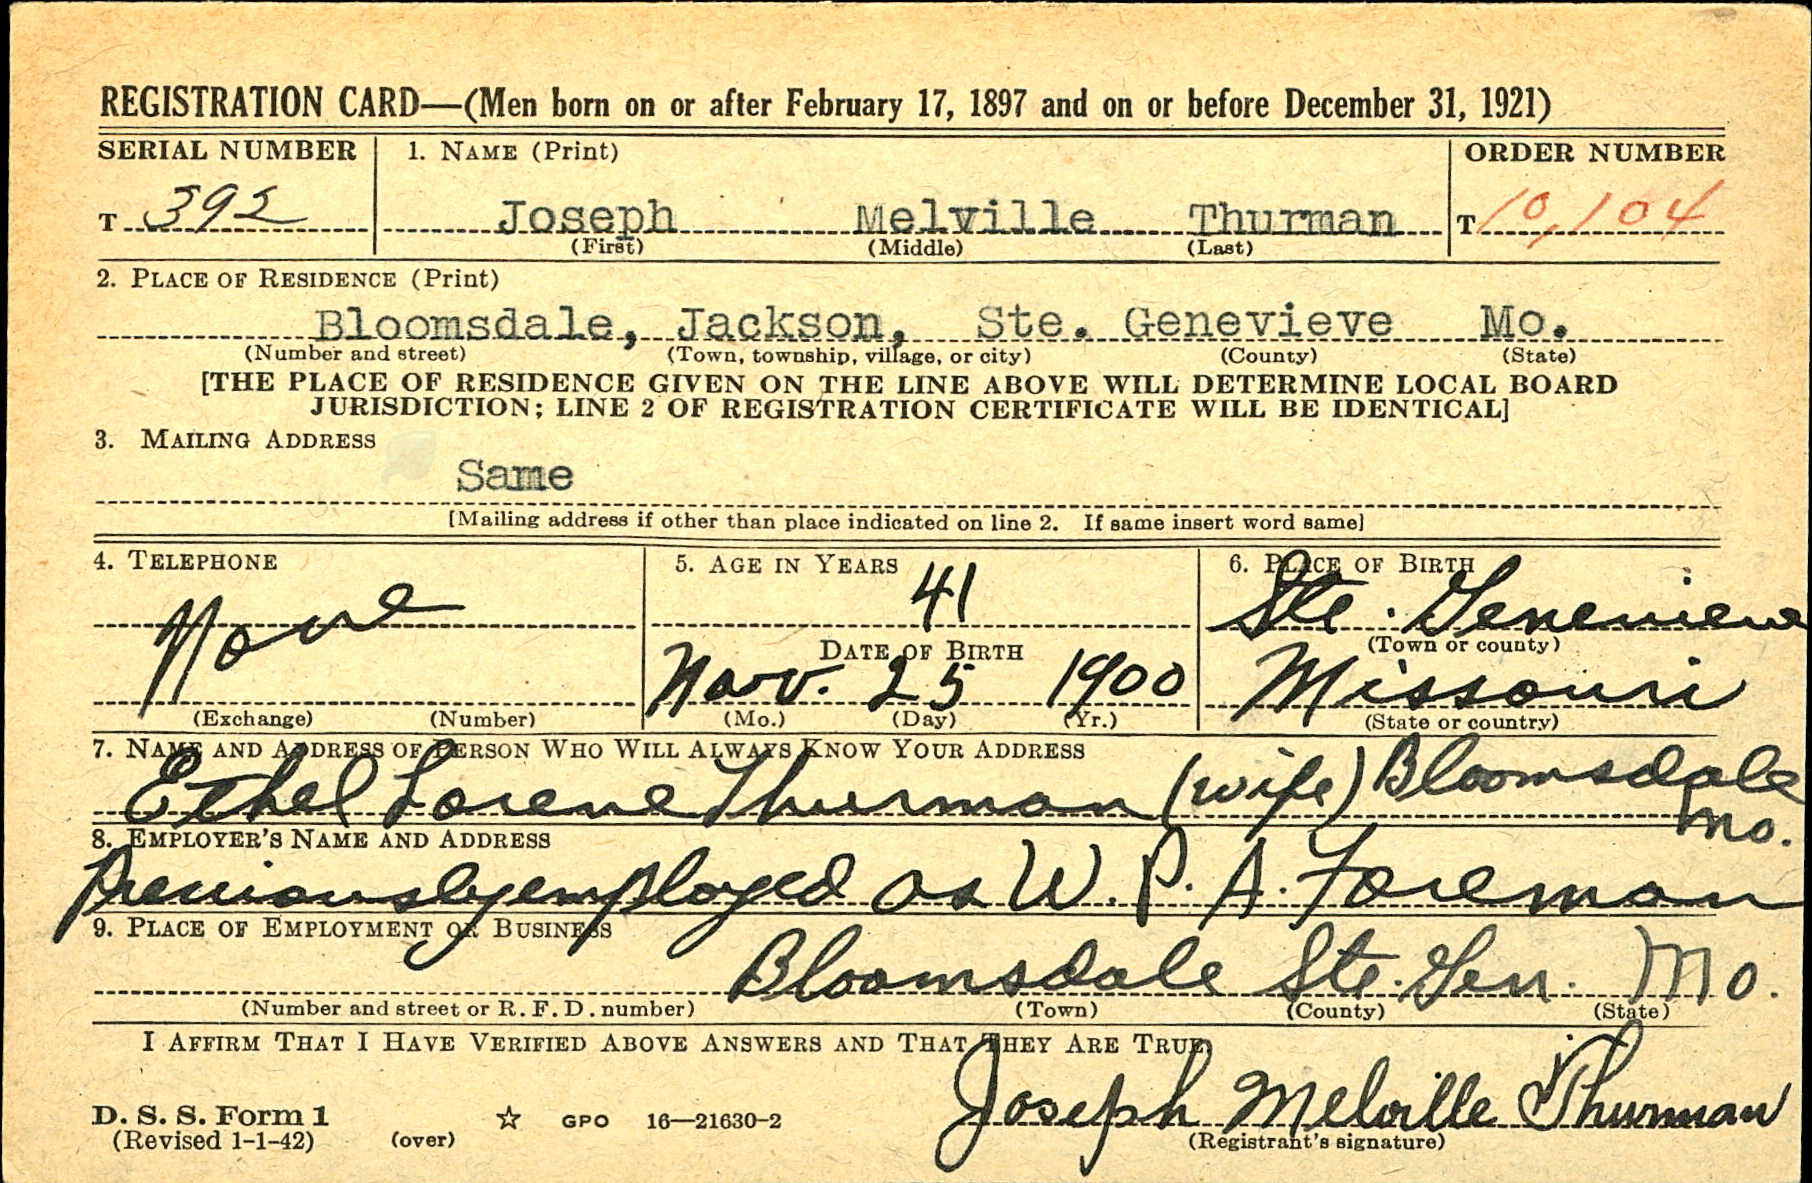 REGISTRATION CARD—(Men born on or after February 17, 1897 and on or before December 31, 1921)
SERIAL NUMBER 1. NAME (Print) ORDER NUMBER
T 392 Joseph Melville Thurman T 10,104
(First) (Middle) (Last)
2. PLACE OF RESIDENCE (Print)
Bloomsdale, Jackson, Ste. Genevieve Mo.
(Number and street) (Town, township, village, or city) (County) (State)
[THE PLACE OF RESIDENCE GIVEN ON THE LINE ABOVE WILL DETERMINE LOCAL BOARD
JURISDICTION; LINE 2 OF REGISTRATION CERTIFICATE WILL BE IDENTICAL]
3. MAILING ADDRESS
Same
[Mailing address if other than place indicated on line 2. If same insert word same]
4. TELEPHONE 5. AGE IN YEARS 6. PLACE OF BIRTH
None 41 Ste. Genevieve
DATE OF BIRTH (Town or county)
Nov. 25 1900 Missouri
(Exchange) (Number) (Mo.) (Day) (Yr.) (State or country)
7. NAME AND ADDRESS OF PERSON WHO WILL ALWAYS KNOW YOUR ADDRESS
Ethel Lorene Thurman (wife) Bloomsdale
Mo.
8. EMPLOYER'S NAME AND ADDRESS
Previously employed as W.P.A. Foreman
9. PLACE OF EMPLOYMENT OR BUSINESS
Bloomsdale Ste. Gen. Mo.
(Number and street or R. F. D. number) (Town) (County) (State)
I AFFIRM THAT I HAVE VERIFIED ABOVE ANSWERS AND THAT THEY ARE TRUE.
Joseph Melville Thurman
D. S. S. Form 1 ☆ GPO 16—21630-2
(Revised 1-1-42) (over) (Registrant's signature)